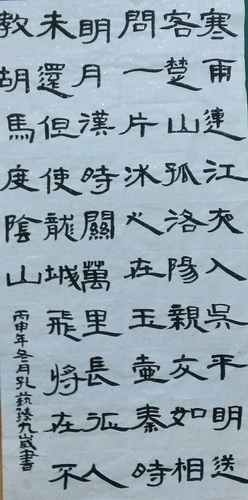 寒雨連江夜入吳平明送
客楚山孤洛陽親友如相
問一片冰心在玉壺秦時
明月漢時關萬里長征人
未還但使龍城飛將在不
教胡馬度陰山
丙申年冬月孔陵九歲書